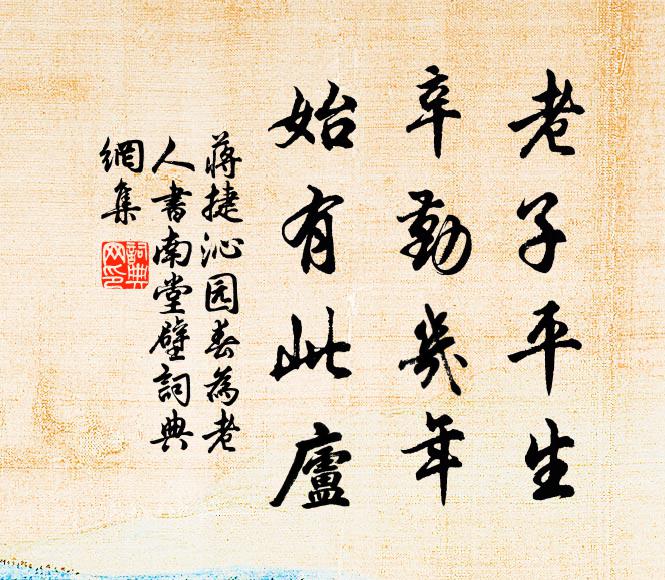 老子平生
辛勤幾年
始有此廬
蔣捷沁园春為老
人書南堂壁詞典
網集
詞典
网印